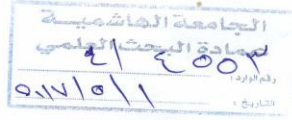 الجامعة الهاشمية
عمادة البحث العلمي
رقم الوارد: ٤/ ٤٥٥٢
التاريخ: